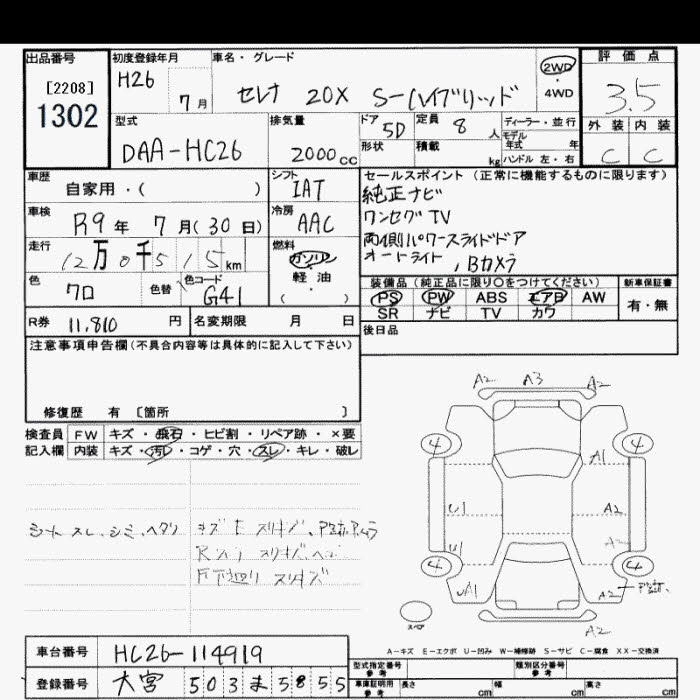 出品番号
[2208]
1302
初度登録年月
H26
7 月
車名・グレード
セレナ 20X S-ハイブリッド
2WD
・
4WD
評価点
3.5
外装 内装
C C
型式
DAA-HC26
排気量
2000 cc
ドア
5D
形状
定員
8 人
積載
kg
ディーラー・並行
モデル
年式 年
ハンドル 左・右
車歴
自家用・( )
シフト
IAT
車検
R9 年 7 月(30日)
冷房
AAC
走行
12万0千515 km
燃料
ガソリン
軽・油
( )
色
クロ
色替
色コード
G41
セールスポイント (正常に機能するものに限ります)
純正ナビ
ワンセグTV
両側パワースライドドア
オートライト , Bカメラ
装備品 (純正品に限り○をつけてください)
PS PW ABS エアB AW
SR ナビ TV カワ
新車保証書
有・無
R券 11,810 円
名変期限 月 日
後日品
注意事項申告欄 (不具合内容等は具体的に記入して下さい)
修復歴 有 〔箇所 〕
検査員
記入欄
FW キズ・飛石・ヒビ割・リペア跡・×要
内装 キズ・汚れ・コゲ・穴・スレ・キレ・破レ
シート スレ、シミ、ヘタリ
キズ E スリキズ
スリキズ
F下廻り スリキズ
A2 A3 A2
4 4
A1
U1 A2
U1 A2
4 4
UA1 A2
スペア
A2
A-キズ E-エクボ U-凹み W-補修跡 S-サビ C-腐食 XX-交換済
車台番号 HC26-114919
登録番号 大宮 503 ま 5855
型式指定番号
参考
類別区分番号
参考
車庫証明用
参考
長さ cm
幅 cm
高さ cm